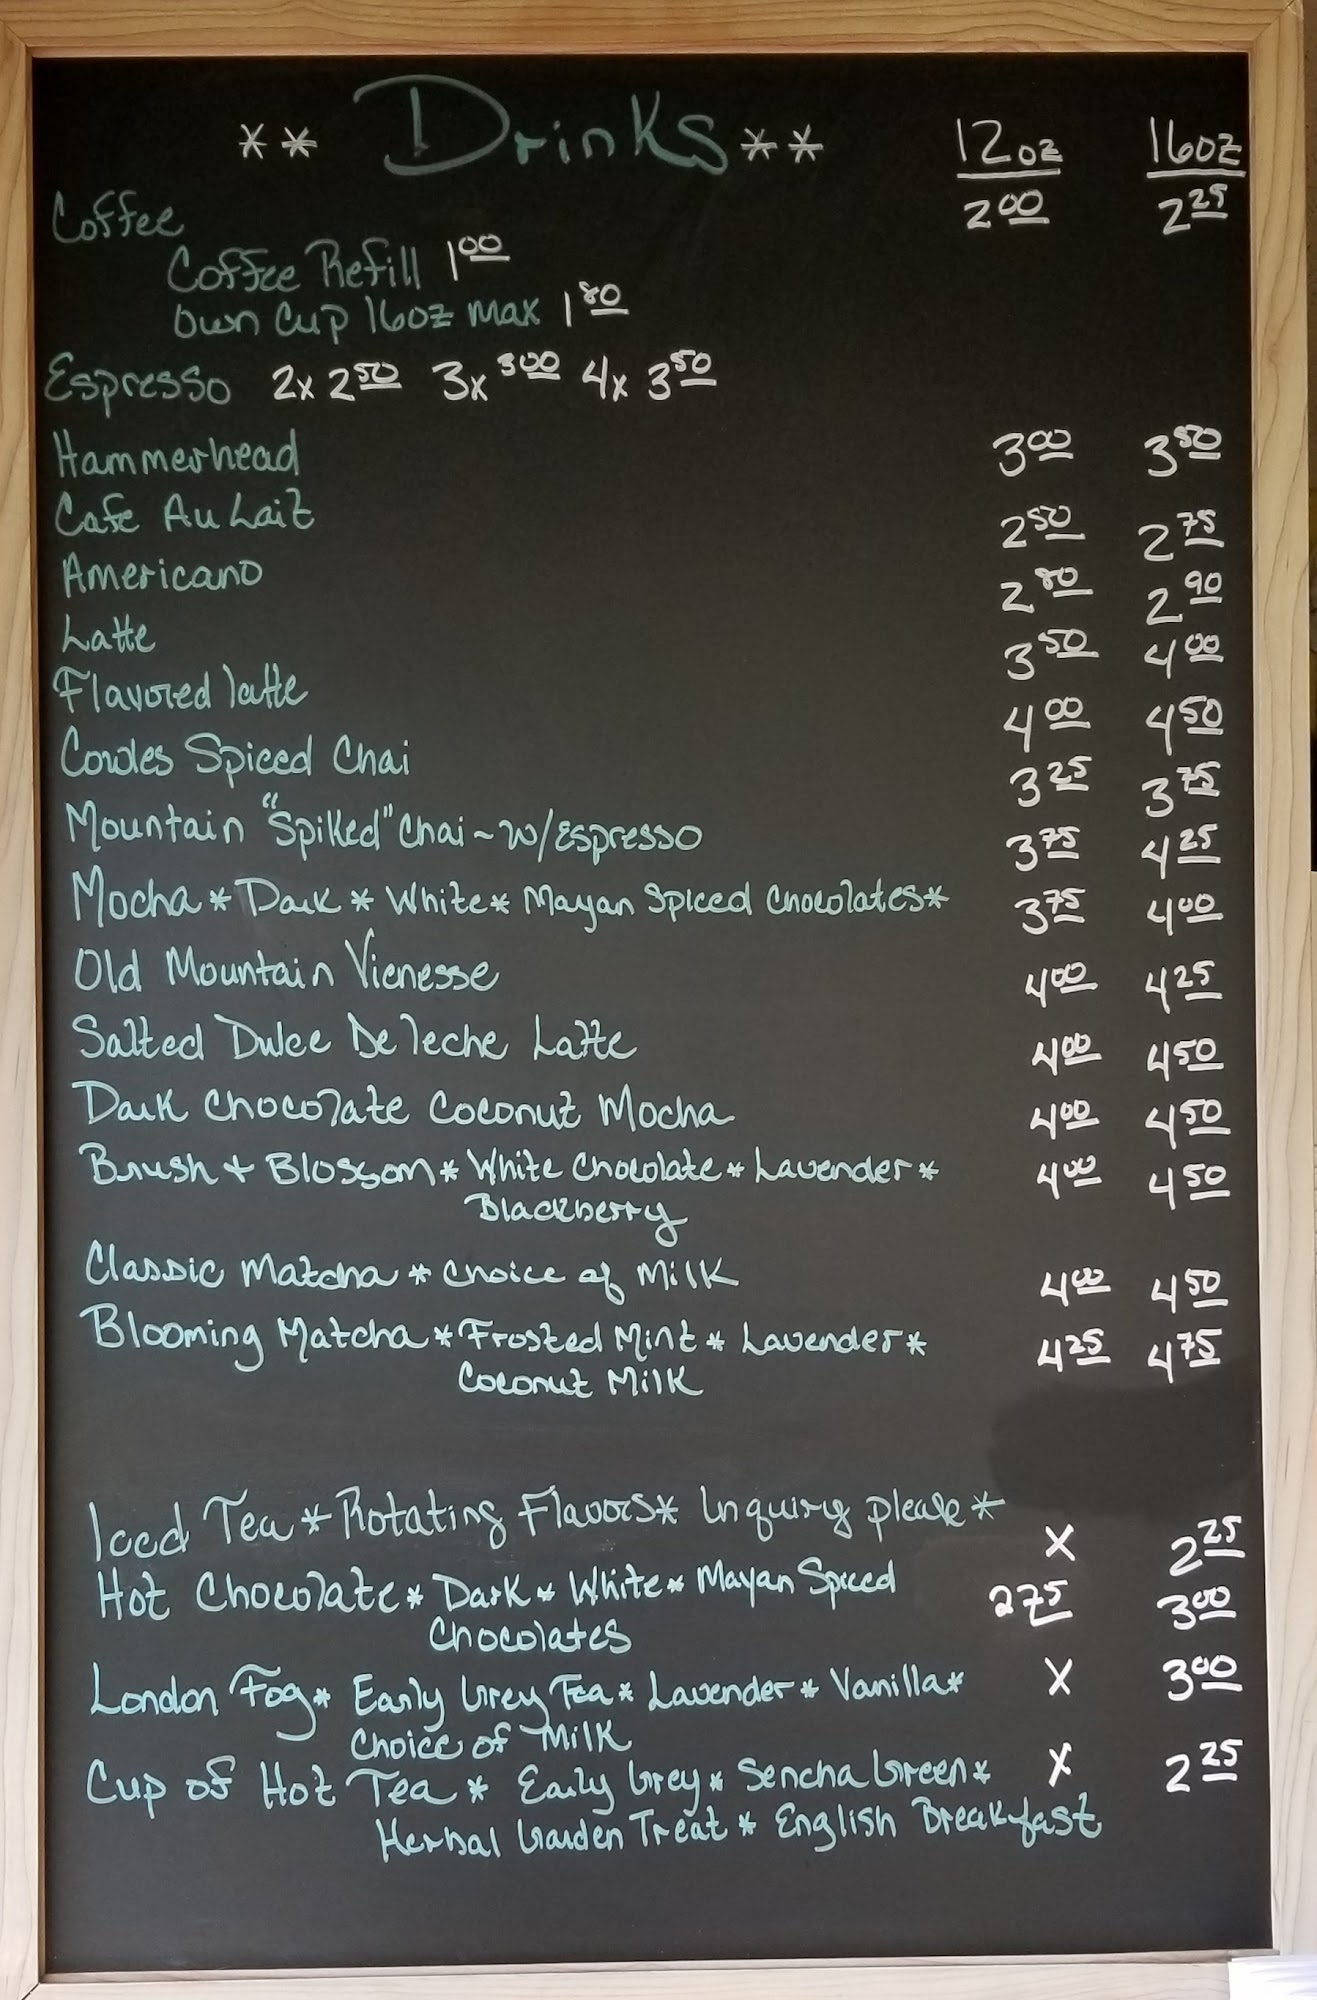 ** Drinks ** 12oz 16oz
Coffee 2.00 2.25
Coffee Refill 1.00
Own Cup 16oz max 1.80
Espresso 2x 2.50 3x 3.00 4x 3.50
Hammerhead 3.00 3.50
Cafe Au Lait 2.50 2.75
Americano 2.80 2.90
Latte 3.50 4.00
Flavored latte 4.00 4.50
Cowles Spiced Chai 3.25 3.75
Mountain "Spiked" Chai ~ w/Espresso 3.75 4.25
Mocha * Dark * White * Mayan Spiced Chocolates * 3.75 4.00
Old Mountain Vienesse 4.00 4.25
Salted Dulce De leche Latte 4.00 4.50
Dark Chocolate Coconut Mocha 4.00 4.50
Brush + Blossom * White Chocolate * Lavender * 4.00 4.50
Blackberry
Classic Matcha * Choice of Milk 4.00 4.50
Blooming Matcha * Frosted Mint * Lavender * 4.25 4.75
Coconut Milk
Iced Tea * Rotating Flavors * Inquiry please * X 2.25
Hot Chocolate * Dark * White * Mayan Spiced 2.75 3.00
Chocolates
London Fog * Early Grey Tea * Lavender * Vanilla * X 3.00
Choice of Milk
Cup of Hot Tea * Early Grey * Sencha Green * X 2.25
Herbal Garden Treat * English Breakfast